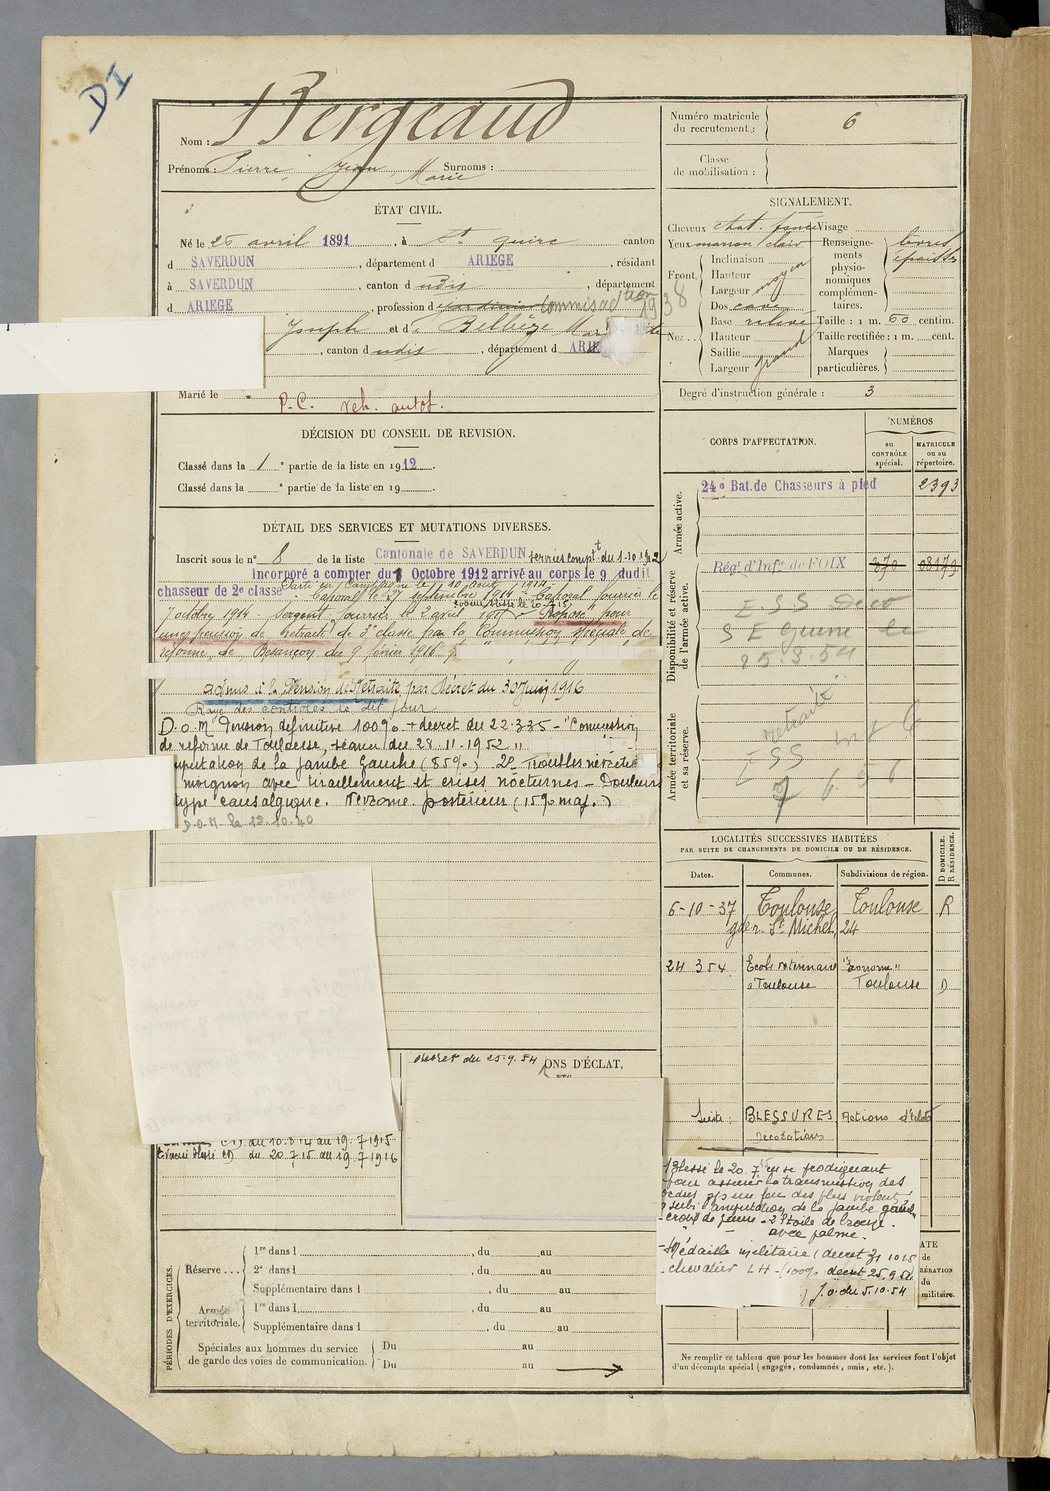 DI
Nom : Bergeaud
Prénoms : Pierre, Jean, Marie Surnoms :
ÉTAT CIVIL.
Né le 25 avril 1891, à St quirc canton
d SAVERDUN, département d ARIEGE, résidant
à SAVERDUN, canton d udis, département
d ARIEGE, profession d
1938
Joseph et d Belbèze
, canton d udis, département d ARIE
Marié le
P.C. veh. autof.
DÉCISION DU CONSEIL DE REVISION.
Classé dans la 1 e partie de la liste en 1912.
Classé dans la e partie de la liste en 19
DÉTAIL DES SERVICES ET MUTATIONS DIVERSES.
Inscrit sous le n° 8 de la liste Cantonale de SAVERDUN services compt du 1.10.1912
Incorporé a compter du 1 Octobre 1912 arrivé au corps le 9 dudit
chasseur de 2e classe
Caporal le 27 septembre 1914. Caporal fourrier le
7 octobre 1914. Sergent fourrier le 2 avril 1915. Proposé pour
une pension de retraite de 3e classe par la Commission spéciale de
réforme de Besançon du 9 février 1916.
admis à la Pension de Retraite, par Décret du 30 Juin 1916
Rayé des contrôles le dit jour
D.O.M. Pension définitive 100% + décret du 22.3.35 - "Commission
de réforme de Toulouse, séance du 28.11.1952"
mputation de la Jambe Gauche (85%) - 2° Troubles
moignon avec tiraillement et crises nocturnes - Douleurs
type causalgique. Névrome postérieur (15% maj.)
Evacué blessé (1) du 20.7.15 au 19.7.1916
Décret du 25.9.54
ONS D'ÉCLAT,
PÉRIODES D'EXERCICES.
Réserve ... 1re dans l , du au
2e dans l , du au
Supplémentaire dans l , du au
Armée territoriale. 1re dans l , du au
Supplémentaire dans l , du au
Spéciales aux hommes du service de garde des voies de communication. Du au
Du au
Numéro matricule du recrutement : 6
Classe de mobilisation :
SIGNALEMENT.
Cheveux chat. foncé Visage
Yeux marron clair Renseigne-
ments
physio-
nomiques
complémen-
taires.
lèvres
épaisses
Front. Inclinaison
Hauteur moyen
Largeur
Nez.. Dos cave
Base relevé Taille : 1 m. 60 centim.
Hauteur Taille rectifiée : 1 m. cent.
Saillie Marques
Largeur grand particulières.
Degré d'instruction générale : 3
CORPS D'AFFECTATION.
NUMÉROS
au CONTRÔLE spécial.
MATRICULE ou au répertoire.
Armée active.
24e Bat. de Chasseurs à pied 2393
Disponibilité et réserve de l'armée active.
Rég. d'Infie de FOIX
25.3.54
Armée territoriale et sa réserve.
retraité
ESS
LOCALITÉS SUCCESSIVES HABITÉES
PAR SUITE DE CHANGEMENTS DE DOMICILE OU DE RÉSIDENCE.
Dates. Communes. Subdivisions de région. D DOMICILE. R RÉSIDENCE.
6-10-37 Toulouse Toulouse R
St Michel, 24
24 3 54. Ecole vétérinaire "Econome"
à Toulouse Toulouse D
Suite : BLESSURES, Actions d'éclat
Décorations
Blessé le 20.7.15 en se prodiguant
pour assurer la transmission des
ordres ss un feu des plus violent
a subi l'amputation de la jambe gauche
- croix de guerre - 2 étoile de bronze.
avec palme.
- Médaille militaire
- chevalier LH - (100% décret 25.9.54
J.O. du 5.10.54
Ne remplir ce tableau que pour les hommes dont les services font l'objet
d'un décompte spécial (engagés, condamnés, omis, etc.).